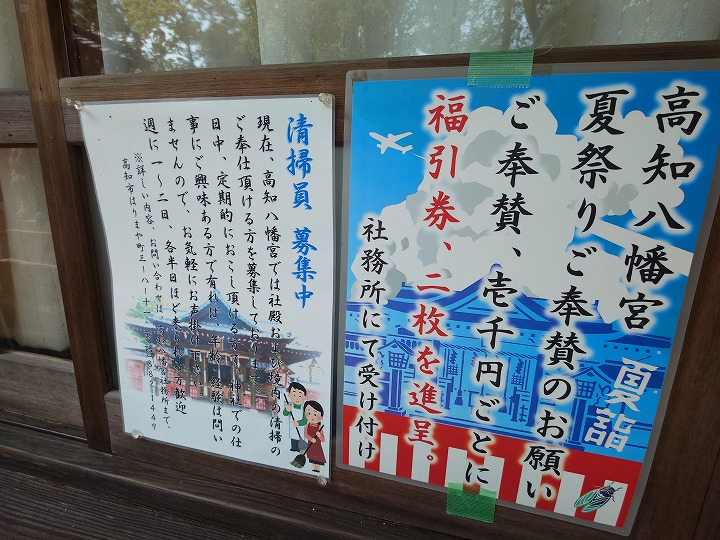 高知八幡宮
夏祭りご奉賛のお願い
ご奉賛、壱千円ごとに
福引券、二枚を進呈。
社務所にて受け付け
夏詣
清掃員 募集中
現在、高知八幡宮では社殿および境内の清掃の
ご奉仕頂ける方を募集しております。
日中、定期的におこし頂ける方で、神社での仕
事にご興味ある方で有れば、年齢、経験は問い
ませんので、お気軽にお声掛け下さい。
週に一〜二日、各半日ほど来られる方歓迎
※詳しい内容、お問い合わせは、高知八幡宮社務所まで、
高知市はりまや町三ー八ー十一